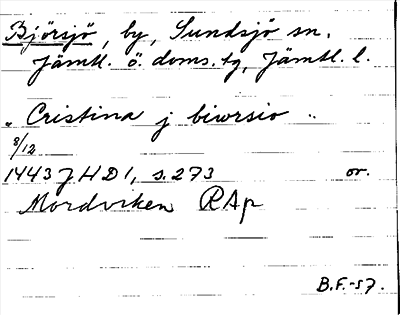 Björsjö, by, Sundsjö sn.
Jämtl. ö. doms. tg, Jämtl. l.
"Cristina j biwrsio"
8/12
1443 JHD1, s. 273 or.
Mordviken RAp
B.F.-57.